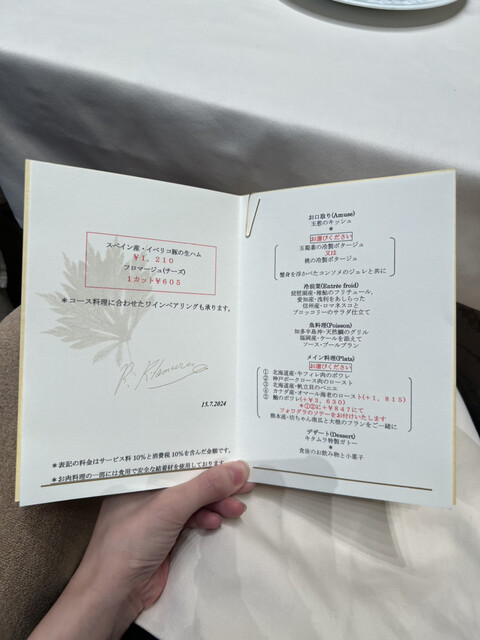 スペイン産・イベリコ豚の生ハム
￥1，210
フロマージュ(チーズ)
1カット￥605
＊コース料理に合わせたワインペアリングも承ります。
15.7.2024
＊表記の料金はサービス料10％と消費税10％を含んだ金額です。
＊お肉料理の一部には食用で安全な結着材を使用しております。
お口取り(Amuse)
玉葱のキッシュ
＊
お選びください
玉蜀黍の冷製ポタージュ
又は
桃の冷製ポタージュ
蟹身を浮かべたコンソメのジュレと共に
冷前菜(Entrée froid)
琵琶湖産・稚鮎のフリチュール、
愛知産・浅利をあしらった
信州産・ロマネスコと
ブロッコリーのサラダ仕立て
魚料理(Poisson)
知多半島沖・天然鯛のグリル
福岡産・ケールを添えて
ソース・ブールブラン
メイン料理(Plats)
お選びください
① 北海道産・牛フィレ肉のポワレ
② 神戸ポークロース肉のロースト
③ 北海道産・帆立貝のベニエ
④ カナダ産・オマール海老のロースト(＋1，815)
⑤ 鮑のポワレ(＋￥3，630)
＊①②に＋￥847にて
フォワグラのソテーをお付けいたします
熊本産・坊ちゃん南瓜と大根のフランをご一緒に
デザート(Dessert)
キタムラ特製ガトー
＊
食後のお飲み物と小菓子